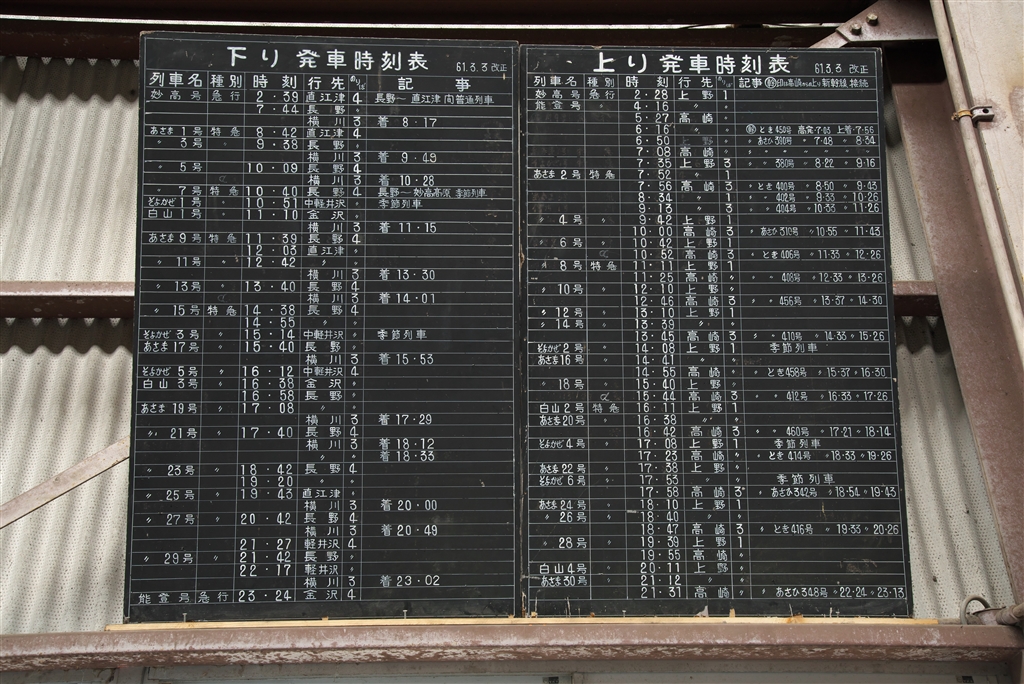 下り発車時刻表 61.3.3 改正
列車名 種別 時刻 行先 のりば 記事
妙高号 急行 2・39 直江津 4 長野〜直江津間普通列車
7・44 長野 〃
横川 3 着 8・17
あさま1号 特急 8・42 直江津 4
〃 3号 〃 9・38 長野 〃
横川 3 着 9・49
〃 5号 〃 10・09 長野 4
横川 3 着 10・28
〃 7号 特急 10・40 長野 4 長野〜妙高高原 季節列車
そよかぜ1号 〃 10・51 中軽井沢 〃 季節列車
白山1号 〃 11・10 金沢 〃
横川 3 着 11・15
あさま9号 特急 11・39 長野 4
12・03 直江津 〃
〃 11号 〃 12・42 〃 〃
横川 3 着 13・30
〃 13号 〃 13・40 長野 4
横川 3 着 14・01
〃 15号 特急 14・38 長野 4
14・55 〃 〃
そよかぜ3号 〃 15・14 中軽井沢 〃 季節列車
あさま17号 〃 15・40 長野 〃
横川 3 着 15・53
そよかぜ5号 〃 16・12 中軽井沢 4
白山3号 〃 16・38 金沢 〃
16・58 長野 〃
あさま19号 〃 17・08 〃 〃
横川 3 着 17・29
〃 21号 〃 17・40 長野 4
横川 3 着 18・12
〃 〃 着 18・33
〃 23号 〃 18・42 長野 4
19・20 〃 〃
〃 25号 〃 19・43 直江津 〃
横川 3 着 20・00
〃 27号 〃 20・42 長野 4
横川 3 着 20・49
21・27 軽井沢 4
〃 29号 〃 21・42 長野 〃
22・17 軽井沢 〃
横川 3 着 23・02
能登号 急行 23・24 金沢 4
上り発車時刻表 61.3.3 改正
列車名 種別 時刻 行先 のりば 記事 新幹線接続
妙高号 急行 2・28 上野 1
能登号 〃 4・16 〃 〃
5・27 高崎 〃
6・16 〃 〃 とき450号 高発・7・03 上着・7・56
6・50 長野 〃 あさひ390号 〃 7・48 〃 8・34
7・08 高崎 〃 〃 〃 〃
7・35 上野 3 〃 380号 〃 8・22 〃 9・16
あさま2号 特急 7・52 〃 1
7・56 高崎 3 〃 とき400号 〃 8・50 〃 9・43
8・34 〃 1 〃 402号 〃 9・33 〃 10・26
9・13 〃 3 〃 404号 〃 10・33 〃 11・26
〃 4号 〃 9・42 上野 1
10・00 高崎 3 〃 あさひ310号 〃 10・55 〃 11・43
〃 6号 〃 10・42 上野 1
10・52 高崎 3 〃 とき406号 〃 11・33 〃 12・26
〃 8号 特急 11・11 上野 1
11・25 高崎 〃 〃 408号 〃 12・33 〃 13・26
〃 10号 〃 12・10 上野 〃
12・46 高崎 3 〃 456号 〃 13・37 〃 14・30
〃 12号 〃 13・10 上野 1
〃 14号 〃 13・39 〃 〃
13・45 高崎 3 〃 410号 〃 14・33 〃 15・26
そよかぜ2号 〃 14・08 上野 1 季節列車
あさま16号 〃 14・41 〃 〃
14・55 高崎 〃 〃 とき458号 〃 15・37 〃 16・30
〃 18号 〃 15・40 上野 〃
15・44 高崎 3 〃 412号 〃 16・33 〃 17・26
白山2号 特急 16・11 上野 1
あさま20号 〃 16・38 〃 〃
16・42 高崎 3 〃 460号 〃 17・21 〃 18・14
そよかぜ4号 〃 17・08 上野 1 季節列車
17・23 高崎 〃 〃 とき414号 〃 18・33 〃 19・26
あさま22号 〃 17・38 上野 〃
そよかぜ6号 〃 17・53 〃 〃 季節列車
17・58 高崎 3 〃 あさひ342号 〃 18・54 〃 19・43
あさま24号 〃 18・10 上野 1
〃 26号 〃 18・40 〃 〃
18・47 高崎 3 〃 とき416号 〃 19・33 〃 20・26
〃 28号 〃 19・39 上野 1
19・55 高崎 〃
白山4号 〃 20・11 上野 〃
あさま30号 〃 21・12 〃 〃
21・31 高崎 〃 〃 あさひ348号 〃 22・24 〃 23・13